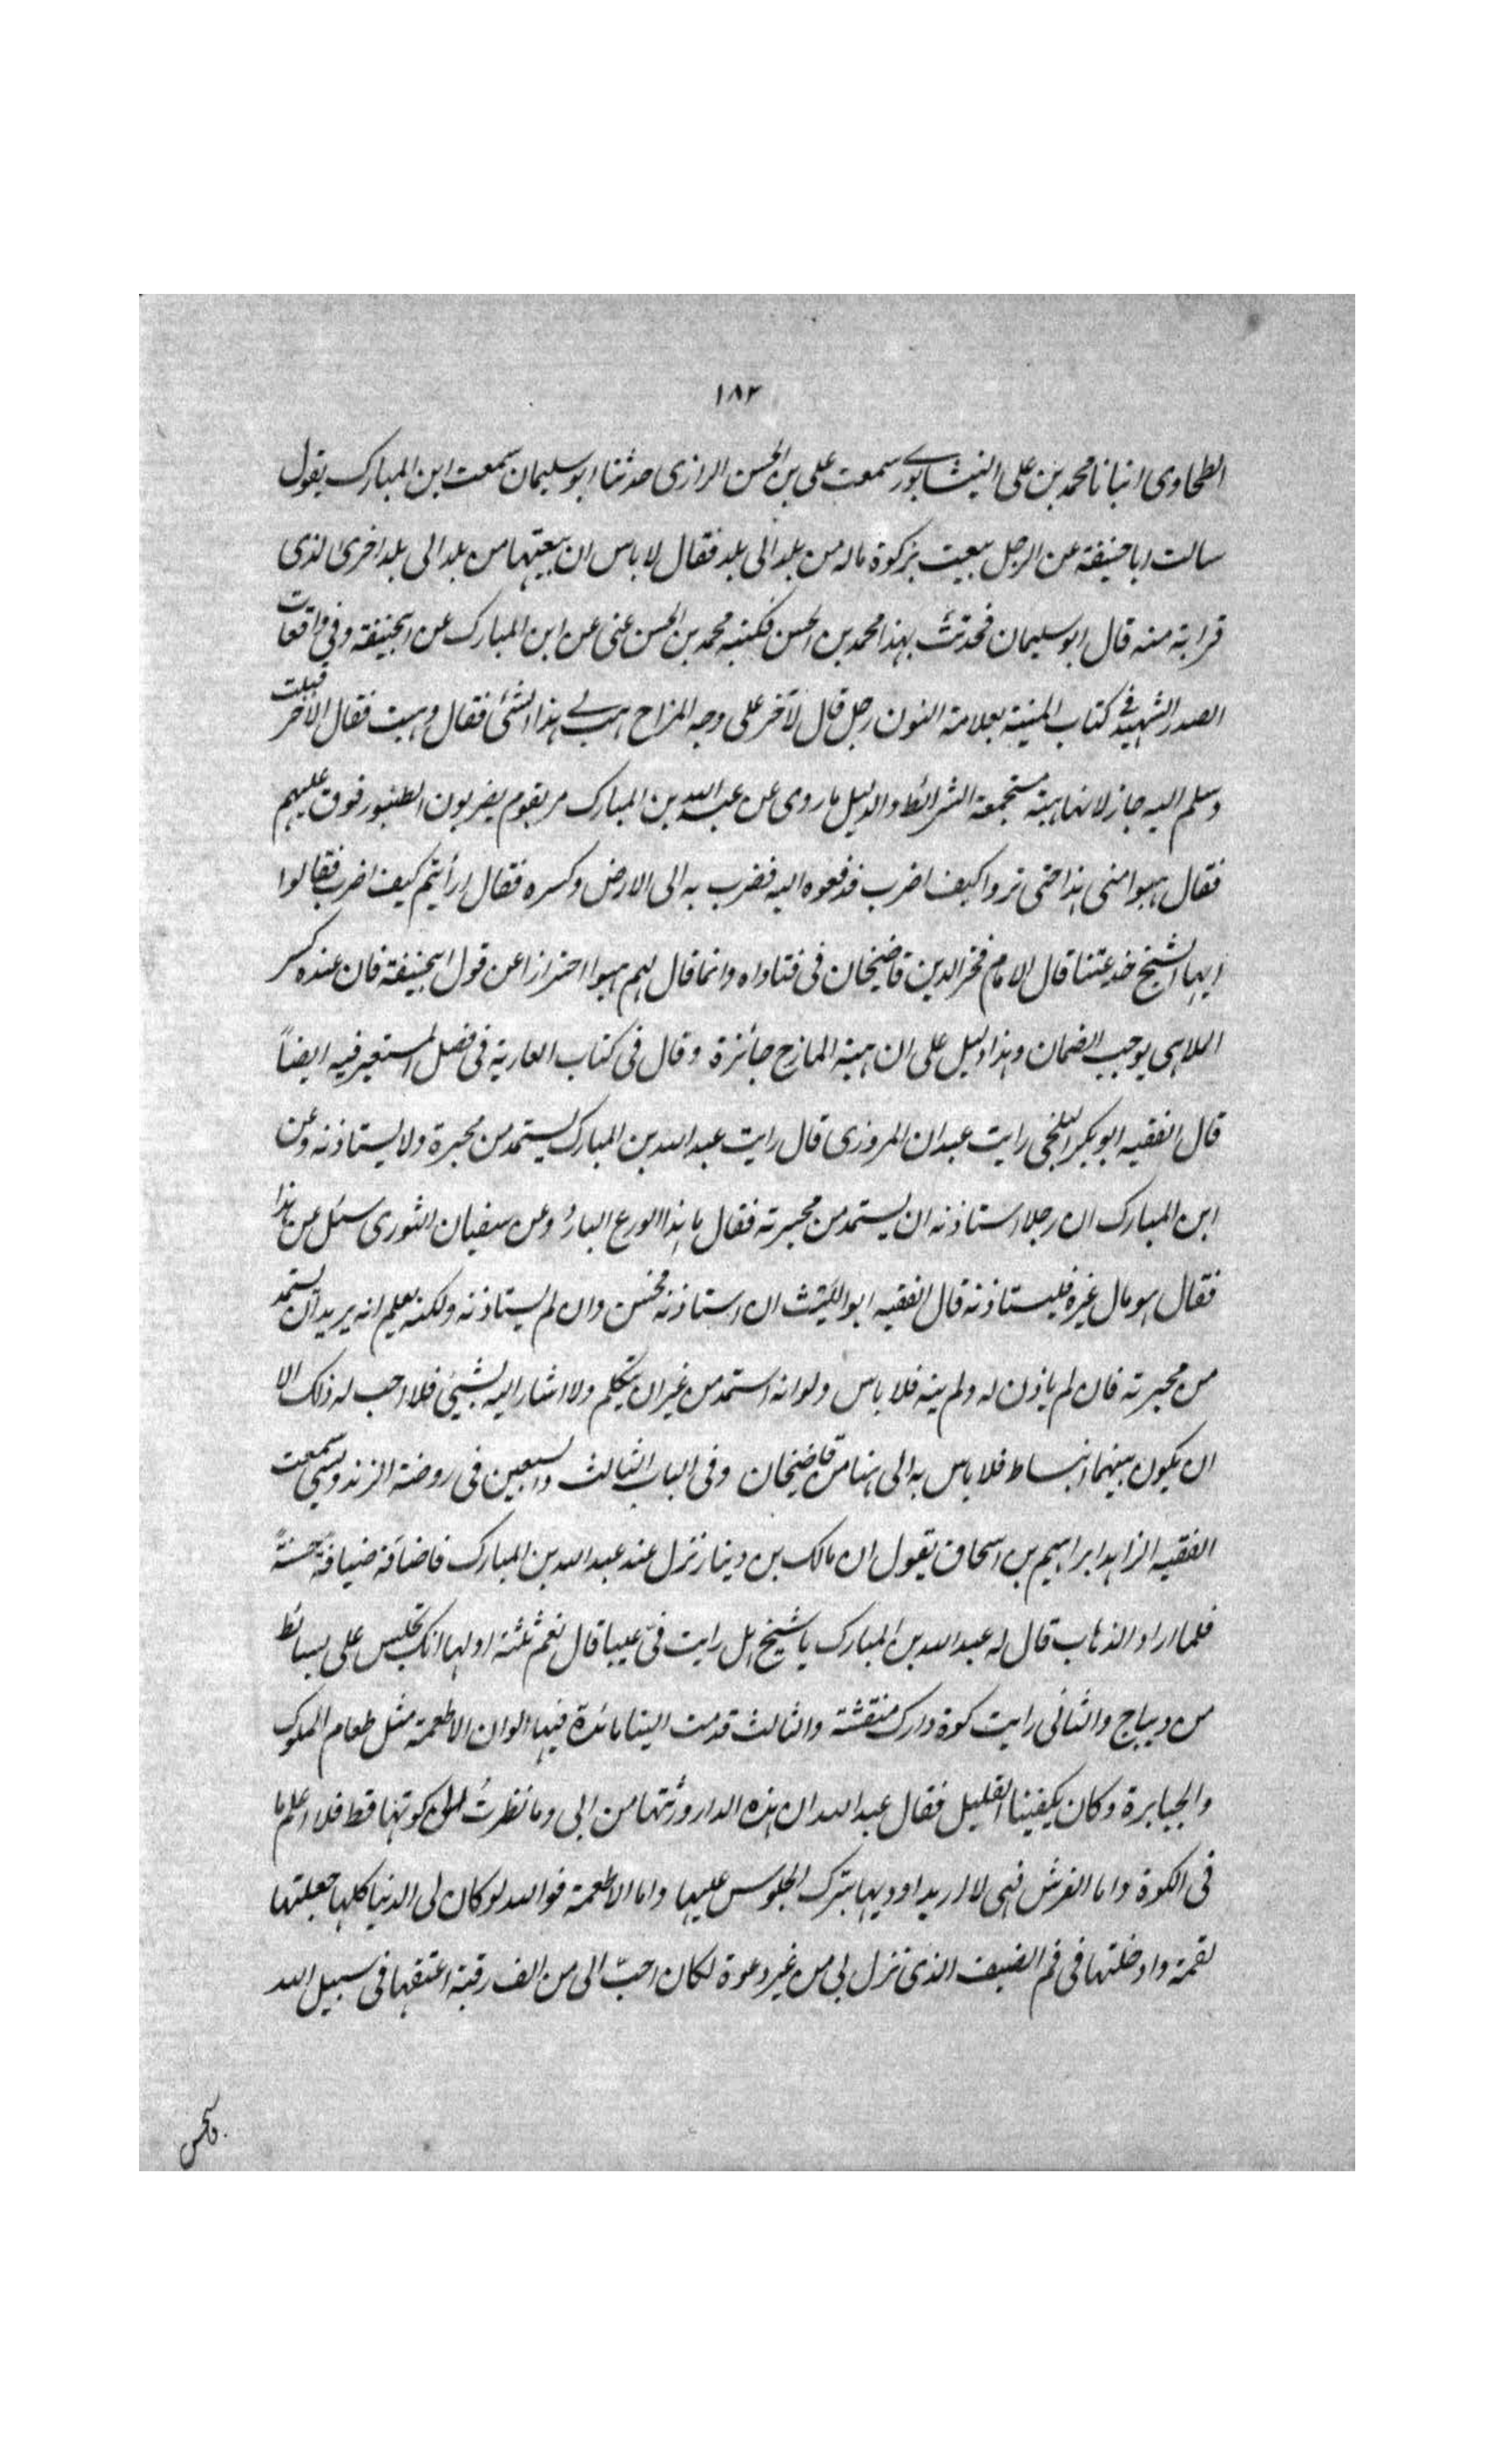 ١٨٢
الطحاوى انبانا محمد بن على النيشابورے سمعت على بن الحسن الرازى حدثنا ابو سليمان سمعت ابن المبارك يقول
سالت ابا حنيفة عن الرجل يبعث بزكوة ماله من بلد الى بلد فقال لا باس ان يبعثها من بلد الى بلد اخرى لذى
قرابة منه قال ابو سليمان فحدثت بهذا محمد بن الحسن فكتبه محمد بن الحسن عنى عن ابن المبارك عن ابيحنيفة وفى واقعات
الصدر الشهيد فى كتاب الهبة بعلامة النون رجل قال لآخر على وجه المزاح هب لے هذا الشئ فقال وهبت فقال الآخر قبلت
وسلم اليه جاز لانها هبة مستجمعة الشرائط والدليل ما روى عن عبد الله بن المبارك مر بقوم يضربون الطنبور فوقف عليهم
فقال هبوا منى هذا حتى تروا كيف اضرب فدفعوه اليه فضرب به الى الارض وكسره فقال ارأيتم كيف اضرب فقالوا
ايها الشيخ خدعتنا قال الامام فخر الدين قاضيخان فى فتاواه وانما قال لهم هبوا احترازا عن قول ابيحنيفة فان عنده كسر
الملاهى يوجب الضمان وهذا دليل على ان هبة المازح جائزة وقال فى كتاب العارية فى فصل المستعير فيه ايضاً
قال الفقيه ابو بكر البلخى رايت عبدان المروزى قال رايت عبد الله بن المبارك يستمد من محبرة ولا يستاذنه وعن
ابن المبارك ان رجلا استاذنه ان يستمد من محبرته فقال ما هذا الورع البارد وعن سفيان الثورى سئل عن هذا
فقال هو مال غيره فليستاذنه قال الفقيه ابو الليث ان استاذنه فحسن وان لم يستاذنه ولكنه يعلم انه يريد ان يستمد
من محبرته فان لم ياذن له ولم ينه فلا باس ولو انه استمد من غير ان يتكلم ولا اشار اليه بشيئ فلا احب له ذلك الا
ان يكون بينهما انبساط فلا باس به الى هنا من قاضيخان وفى الباب الثالث والسبعين فى روضة الزندويسى سمعت
الفقيه الزاهد ابراهيم بن اسحاق يقول ان مالك بن دينار نزل عند عبد الله بن المبارك فاضافه ضيافة حسنة
فلما اراد الذهاب قال له عبد الله بن المبارك يا شيخ هل رايت فىّ عيبا قال نعم ثلثة اولها انك تجلس على بسائط
من ديباج والثانى رايت كوة دارك منقشة والثالث قدمت الينا مائدة فيها الوان الاطعمة مثل طعام الملوك
والجبابرة وكان يكفينا القليل فقال عبد الله ان هذه الدار ورثتها من ابى وما نظرتُ الى كوتها قط فلا اعلم ما
فى الكوة واما الفرش فهى لا اريد اوديها بترك الجلوس عليها واما الاطعمة فوالله لو كان لى الدنيا كلها جعلتها
لقمة وادخلتها فى فم الضيف الذى نزل بى من غير دعوة لكان احبّ الى من الف رقبة اعتقها فى سبيل الله